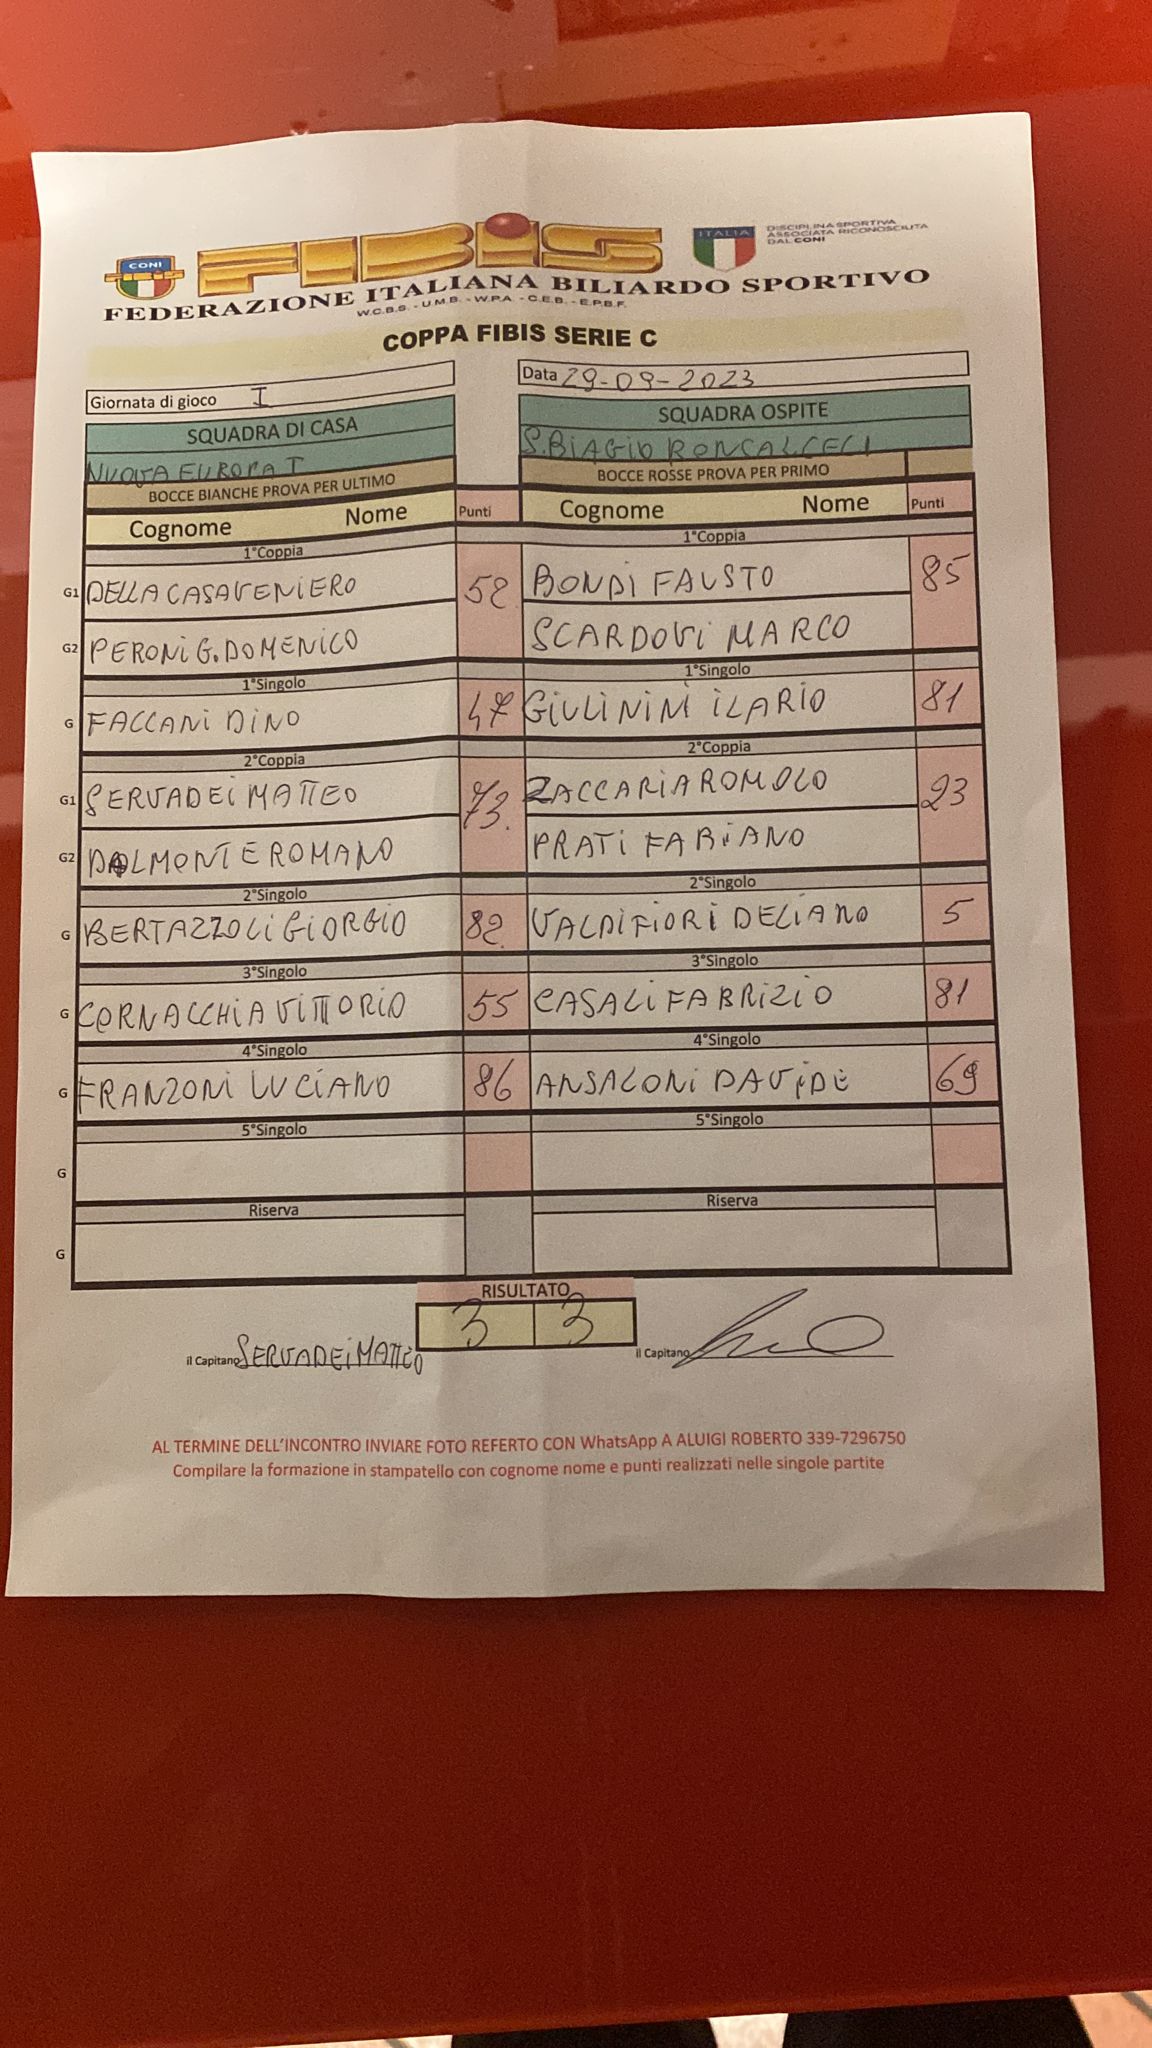 CONI
FIBIS
ITALIA
DISCIPLINA SPORTIVA
ASSOCIATA RICONOSCIUTA
DAL CONI
FEDERAZIONE ITALIANA BILIARDO SPORTIVO
W.C.B.S. - U.M.B. - W.P.A. - C.E.B. - E.P.B.F.
COPPA FIBIS SERIE C
Giornata di gioco I
Data 29-09-2023
SQUADRA DI CASA SQUADRA OSPITE
NUOVA EUROPA I S.BIAGIO RONCALCECI
BOCCE BIANCHE PROVA PER ULTIMO BOCCE ROSSE PROVA PER PRIMO
Cognome Nome Punti Cognome Nome Punti
1°Coppia 1°Coppia
G1 DELLA CASA VENIERO 58 BONDI FAUSTO 85
G2 PERONI G. DOMENICO SCARDOVI MARCO
1°Singolo 1°Singolo
G FACCANI DINO 47 GIULININI ILARIO 81
2°Coppia 2°Coppia
G1 SERVADEI MATTEO 73. ZACCARIA ROMOLO 23
G2 DALMONTE ROMANO PRATI FABIANO
2°Singolo 2°Singolo
G BERTAZZOLI GIORGIO 82 VALDIFIORI DELIANO 5
3°Singolo 3°Singolo
G CORNACCHIA VITTORIO 55 CASALI FABRIZIO 81
4°Singolo 4°Singolo
G FRANZONI LUCIANO 86 ANSALONI DAVIDE 69
5°Singolo 5°Singolo
G
Riserva Riserva
G
RISULTATO
3 3
il Capitano SERVADEI MATTEO il Capitano
AL TERMINE DELL'INCONTRO INVIARE FOTO REFERTO CON WhatsApp A ALUIGI ROBERTO 339-7296750
Compilare la formazione in stampatello con cognome nome e punti realizzati nelle singole partite